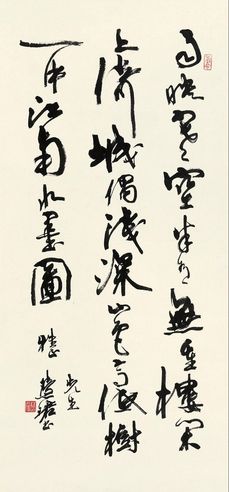 雨曉空半有無重樓閑
上倚城隅淺深山色高低樹
一片江南水墨圖
先生
雅正